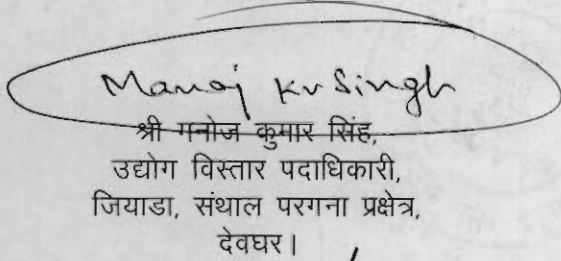 Manoj Kr Singh
श्री मनोज कुमार सिंह,
उद्योग विस्तार पदाधिकारी,
जियाडा, संथाल परगना प्रक्षेत्र,
देवघर।